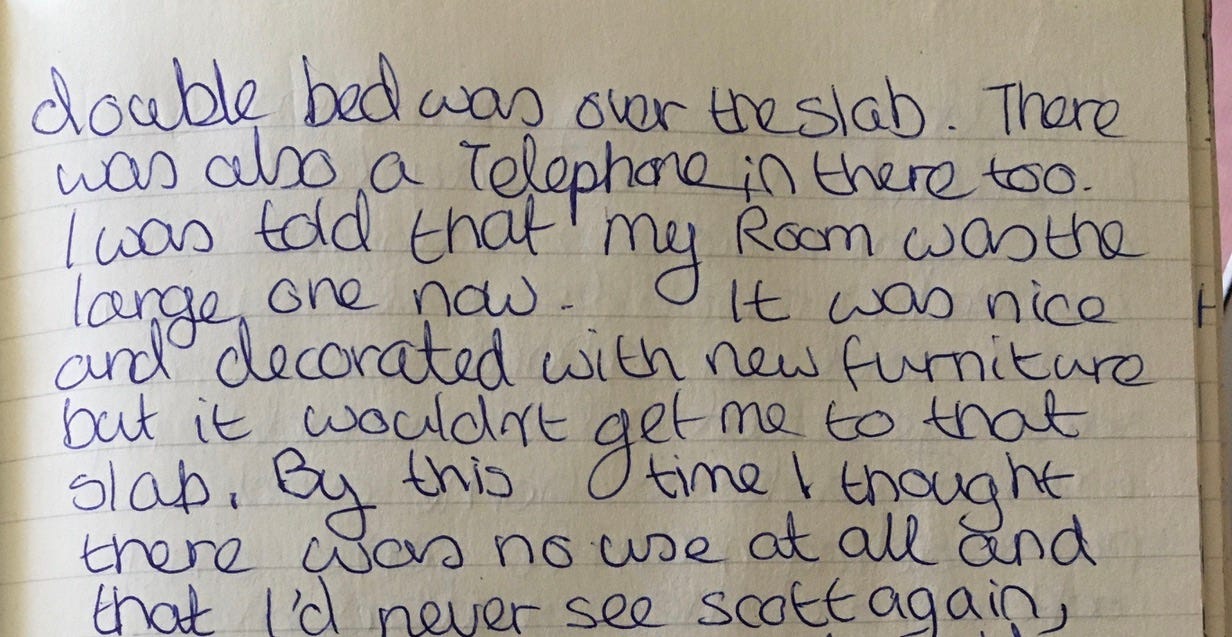 double bed was over the slab. There
was also a Telephone in there too.
I was told that my Room was the
large one now. It was nice
and decorated with new furniture
but it wouldn't get me to that
slab. By this time I thought
there was no use at all and
that I'd never see scott again,